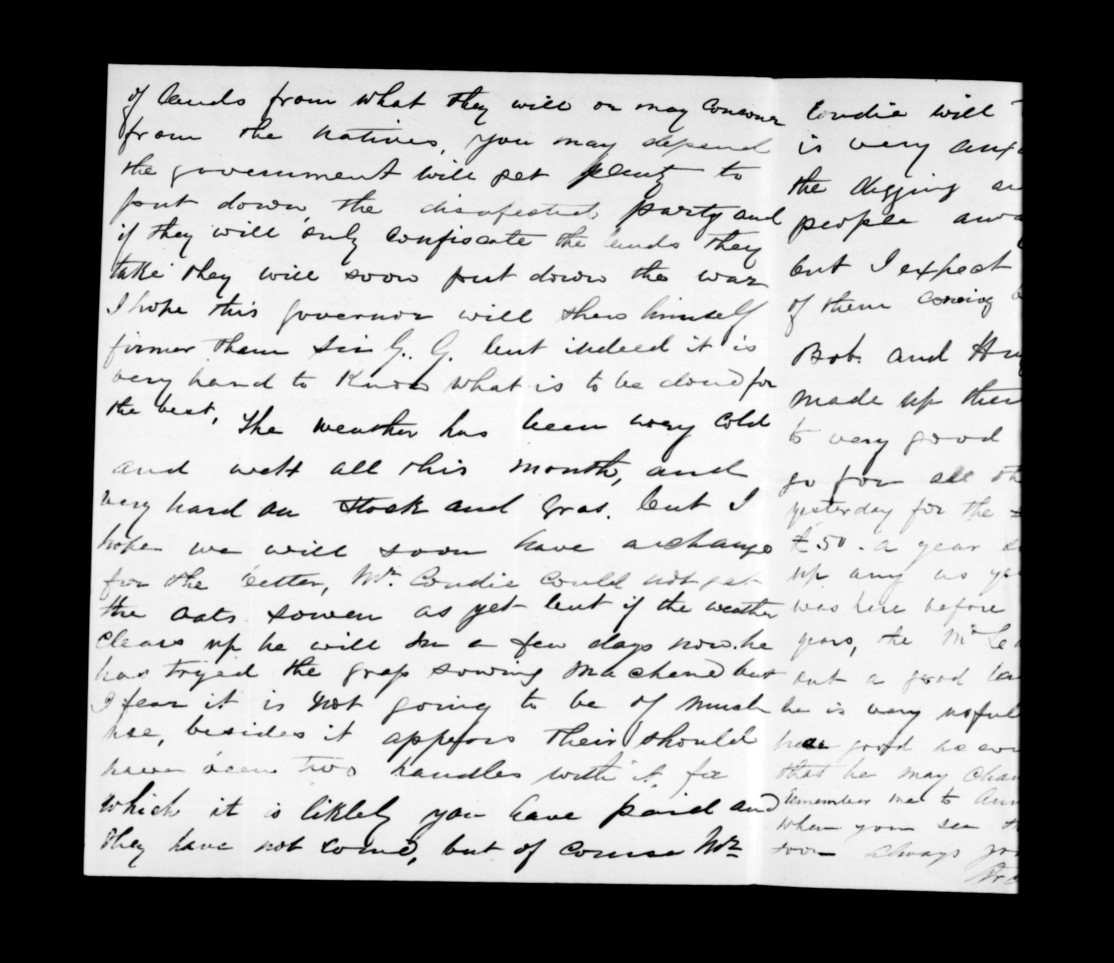 of lands from what they will or may
from the natives, you may depend
the government will get plenty to
put down the disafected party and
if they will only confiscate the lands they
take they will soon put down the war
I hope this governor will shew himself
firmer than Sir G. G. but indeed it is
very hard to know what is to be done for
the best, The weather has been very cold
and wett all this month, and
very hard on stock and gras. but I
hope we will soon have a change
for the better, Mr. Condie could not get
the oats sowen as yet but if the weather
clears up he will in a few days now. he
has tryed the grass sowing machene but
I fear it is not going to be of much
use, besides it appears their should
have been two handles with it for
which it is likley you have paid and
they have not come, but of course Mr
Condie will
is very
the digging
people
but I expect
of them coming
Bob. and
made up
to very good
go for all
yesterday for the
£50. a year
up any as
was here before
years, the Mr
out a good
he is very usful
good as
that he may
Remember me to
when you see
soon always